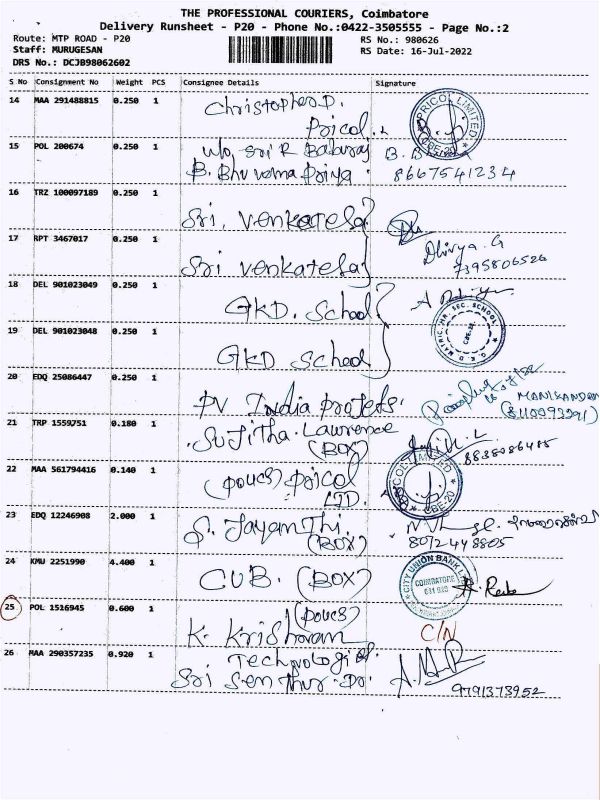 THE PROFESSIONAL COURIERS, Coimbatore
Delivery Runsheet - P20 - Phone No.:0422-3505555 - Page No.:2
Route: MTP ROAD - P20
RS No.: 980626
Staff: MURUGESAN
RS Date: 16-Jul-2022
DRS No.: DCJB98062602
S No Consignment No Weight PCS Consignee Details Signature
14 MAA 291488815 0.250 1 Christopher.D.
Pricol.
PRICOL LIMITED
CBE-20
15 POL 200674 0.250 1 W/o, Sri R Baburaj
B. Bhuvana Priya. 8667541234
16 TRZ 100097189 0.250 1 Sri. Venkatesa
Dhivya.G
17 RPT 3467017 0.250 1 Sri Venkatesa 7395806526
18 DEL 901023049 0.250 1 GKD. School
G.K.D. MATRIC. HR. SEC. SCHOOL
19 DEL 901023048 0.250 1 GKD School
20 EDQ 25086447 0.250 1 PV India Projets. MANIKANDAN
21 TRP 1559751 0.180 1 Sujitha. Lawrence
(BOX) 8838086485
22 MAA 561794416 0.140 1 (Pouch) Pricol
LTD.
PRICOL LIMITED
CBE-20
23 EDQ 12246908 2.000 1 S. Jayanthi.
(BOX) 8072448805
24 KMU 2251990 4.400 1 CUB. (BOX)
CITY UNION BANK LTD
COIMBATORE
25 POL 1516945 0.600 1 (Pouch)
K. Krishnan C/N
26 MAA 290357235 0.920 1 Technologies.
Sri Senthur 9791373952